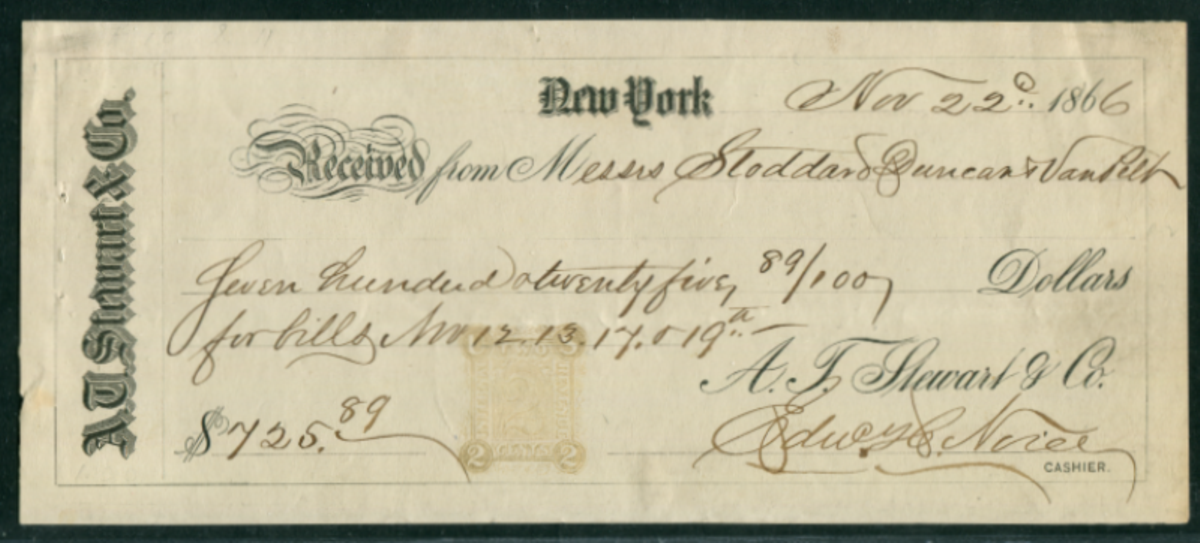 A.T. Stewart & Co.
New York Nov 22d. 1866
Received from Messrs Stoddard Duncan & VanPelt
Seven hundred & twenty five, 89/100 Dollars
for bills Nov 12. 13. 17. & 19th
A. T. Stewart & Co.
$725.89
CASHIER.
2 2